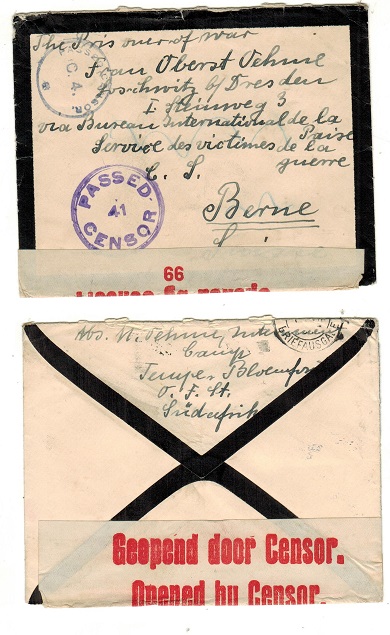 The Prisoner of War
Frau Oberst Oehme
Loschwitz b/Dresden
I Steinweg 3
via Bureau International de la
Paix
Service des victimes de la
guerre
C. S.
Berne
PASSED
41
CENSOR
C. A.
8
66
Abs. M. Oehme, Internment
Camp
Tempe, Bloemfon
O. F. St.
Südafrik
BRIEFAUSGABE
Geopend door Censor.
Opened by Censor.